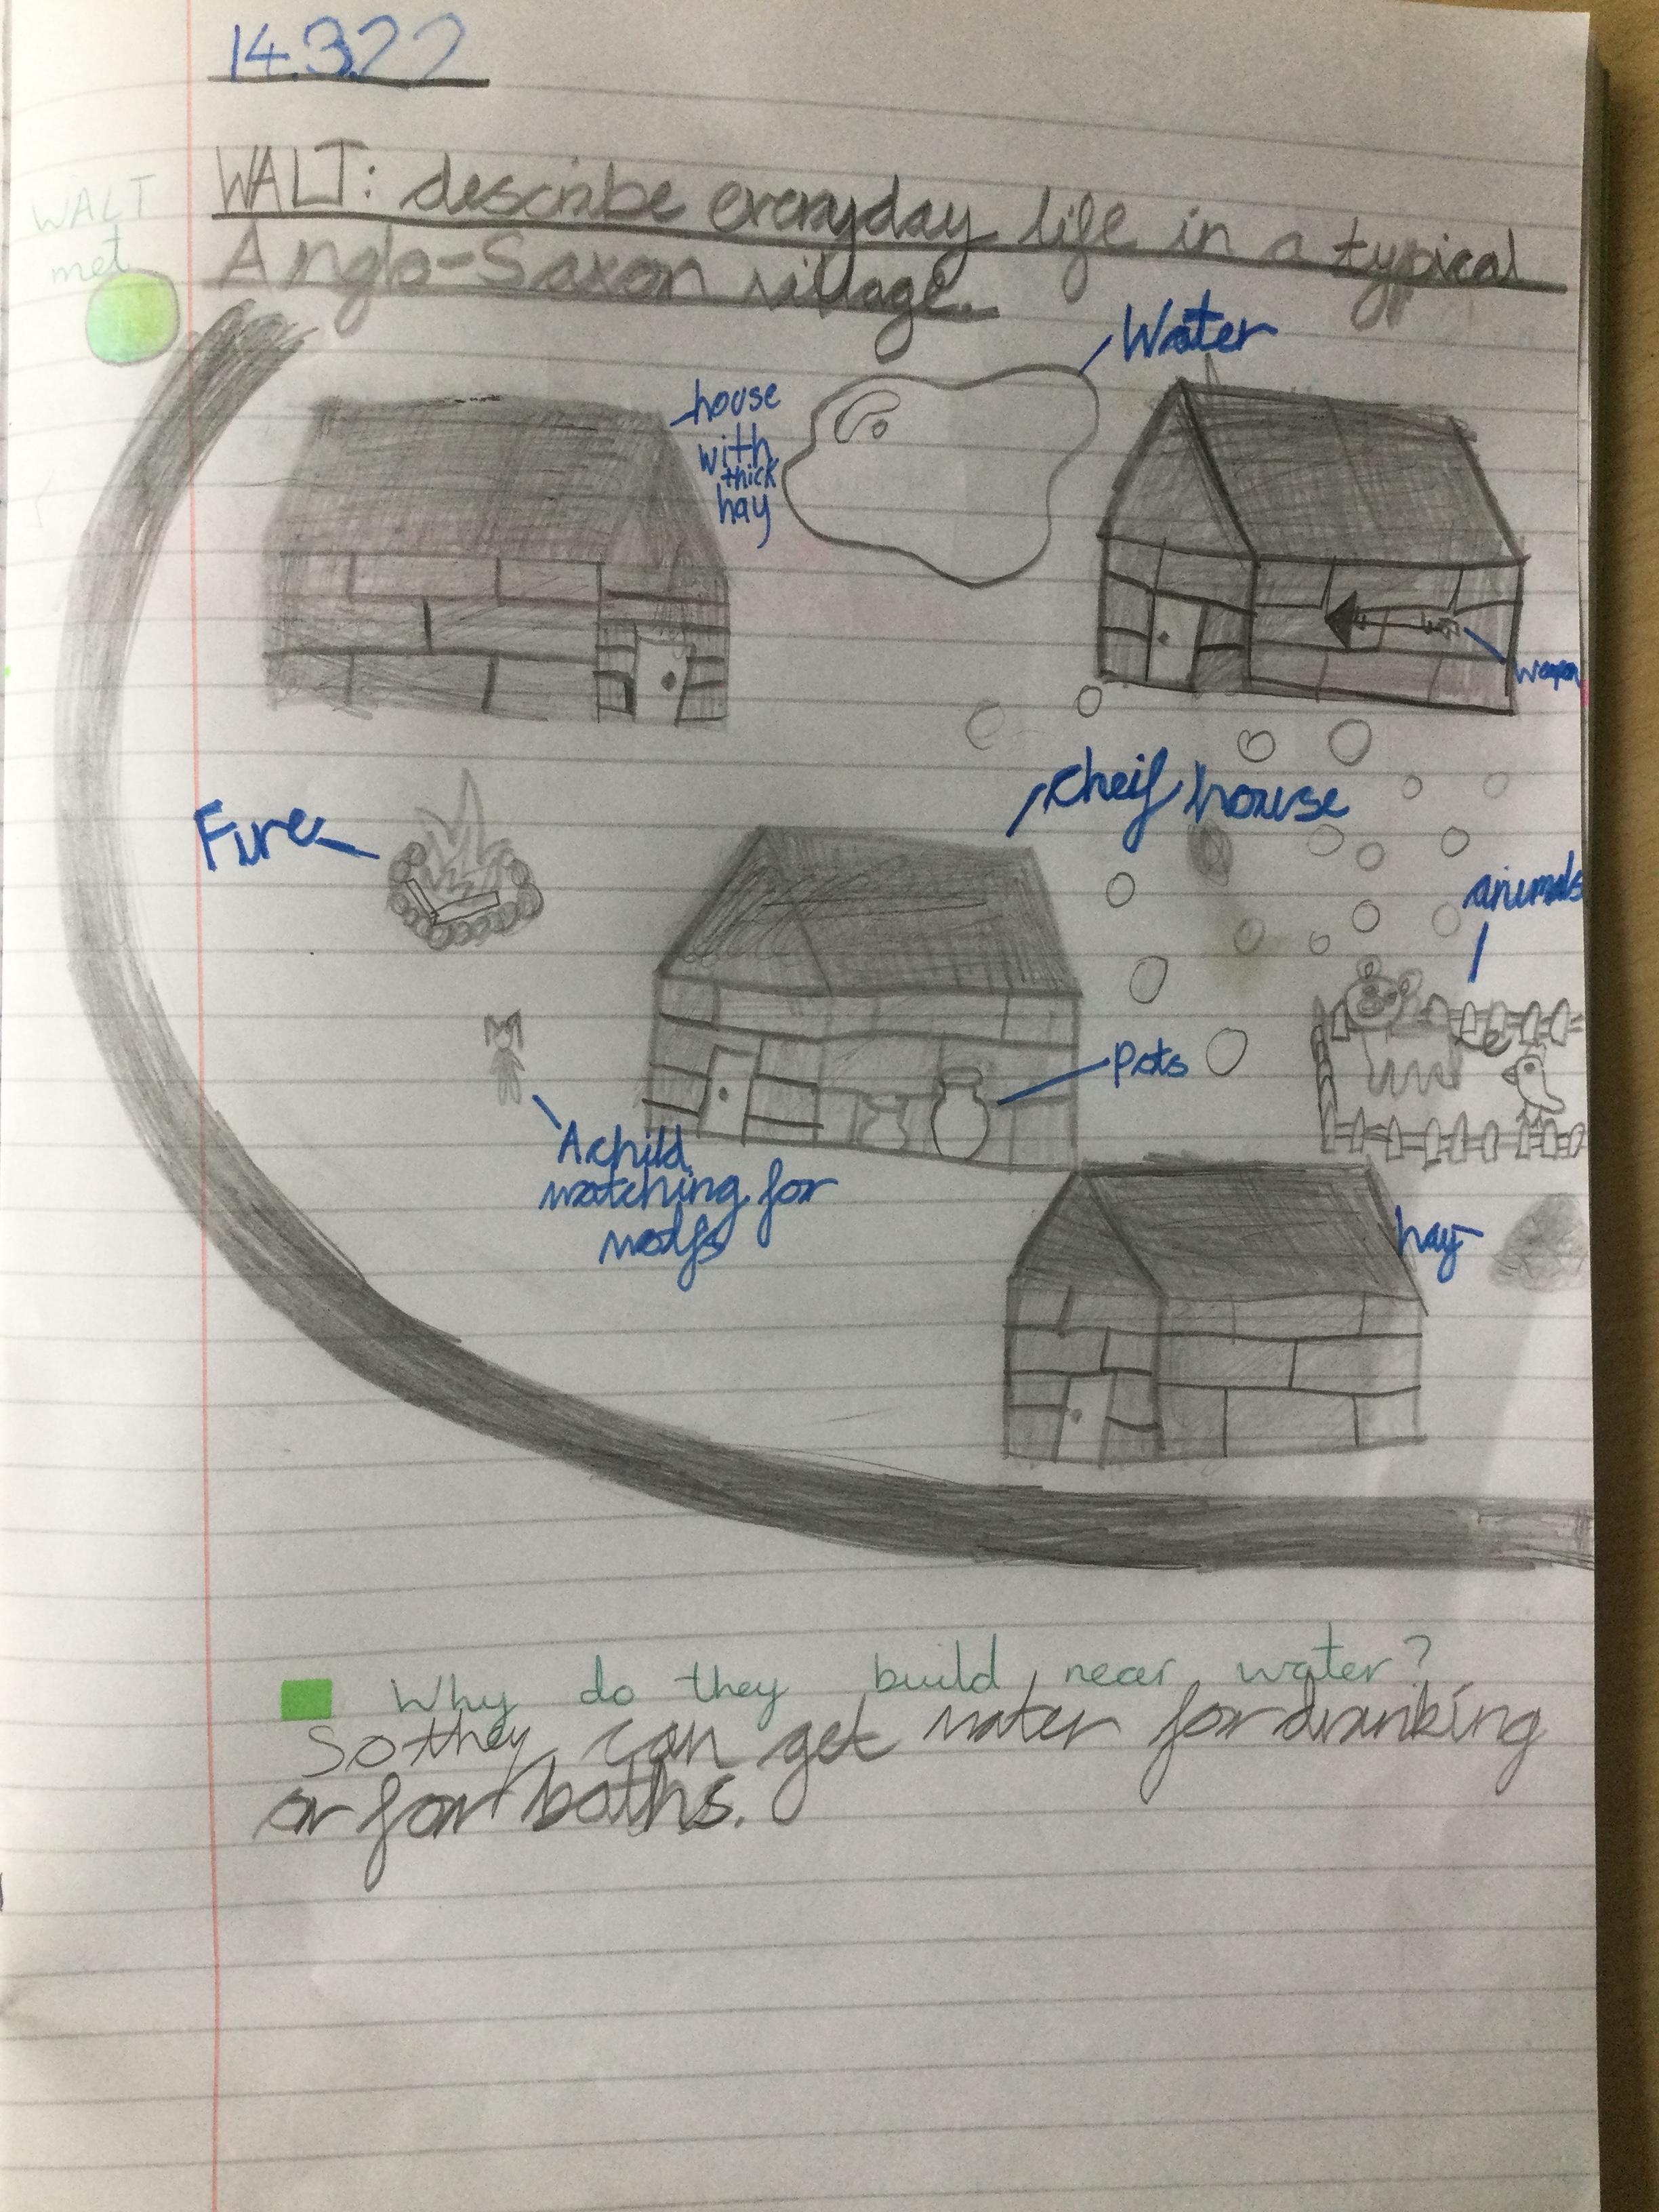 14.3.22
WALT: describe everyday life in a typical
Anglo-Saxon village.
WALT
met
Water
house
with
thick
hay
weapon
cheif house
Fire
animals
pots
A child
watching for
wolfs
hay
Why do they build near water?
So they can get water for drinking
or for baths.